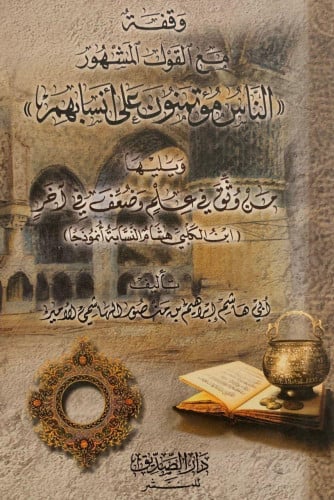 وقفة
مع القول المشهور
«الناس مؤتمنون على أنسابهم»
ويليها
من وُثِّق في علم وضُعِّف في آخر
(ابن الكلبي هشام النسابة أنموذجا)
تأليف
أبي هاشم إبراهيم بن منصور الهاشمي الأمير
دار الصديق
للنشر